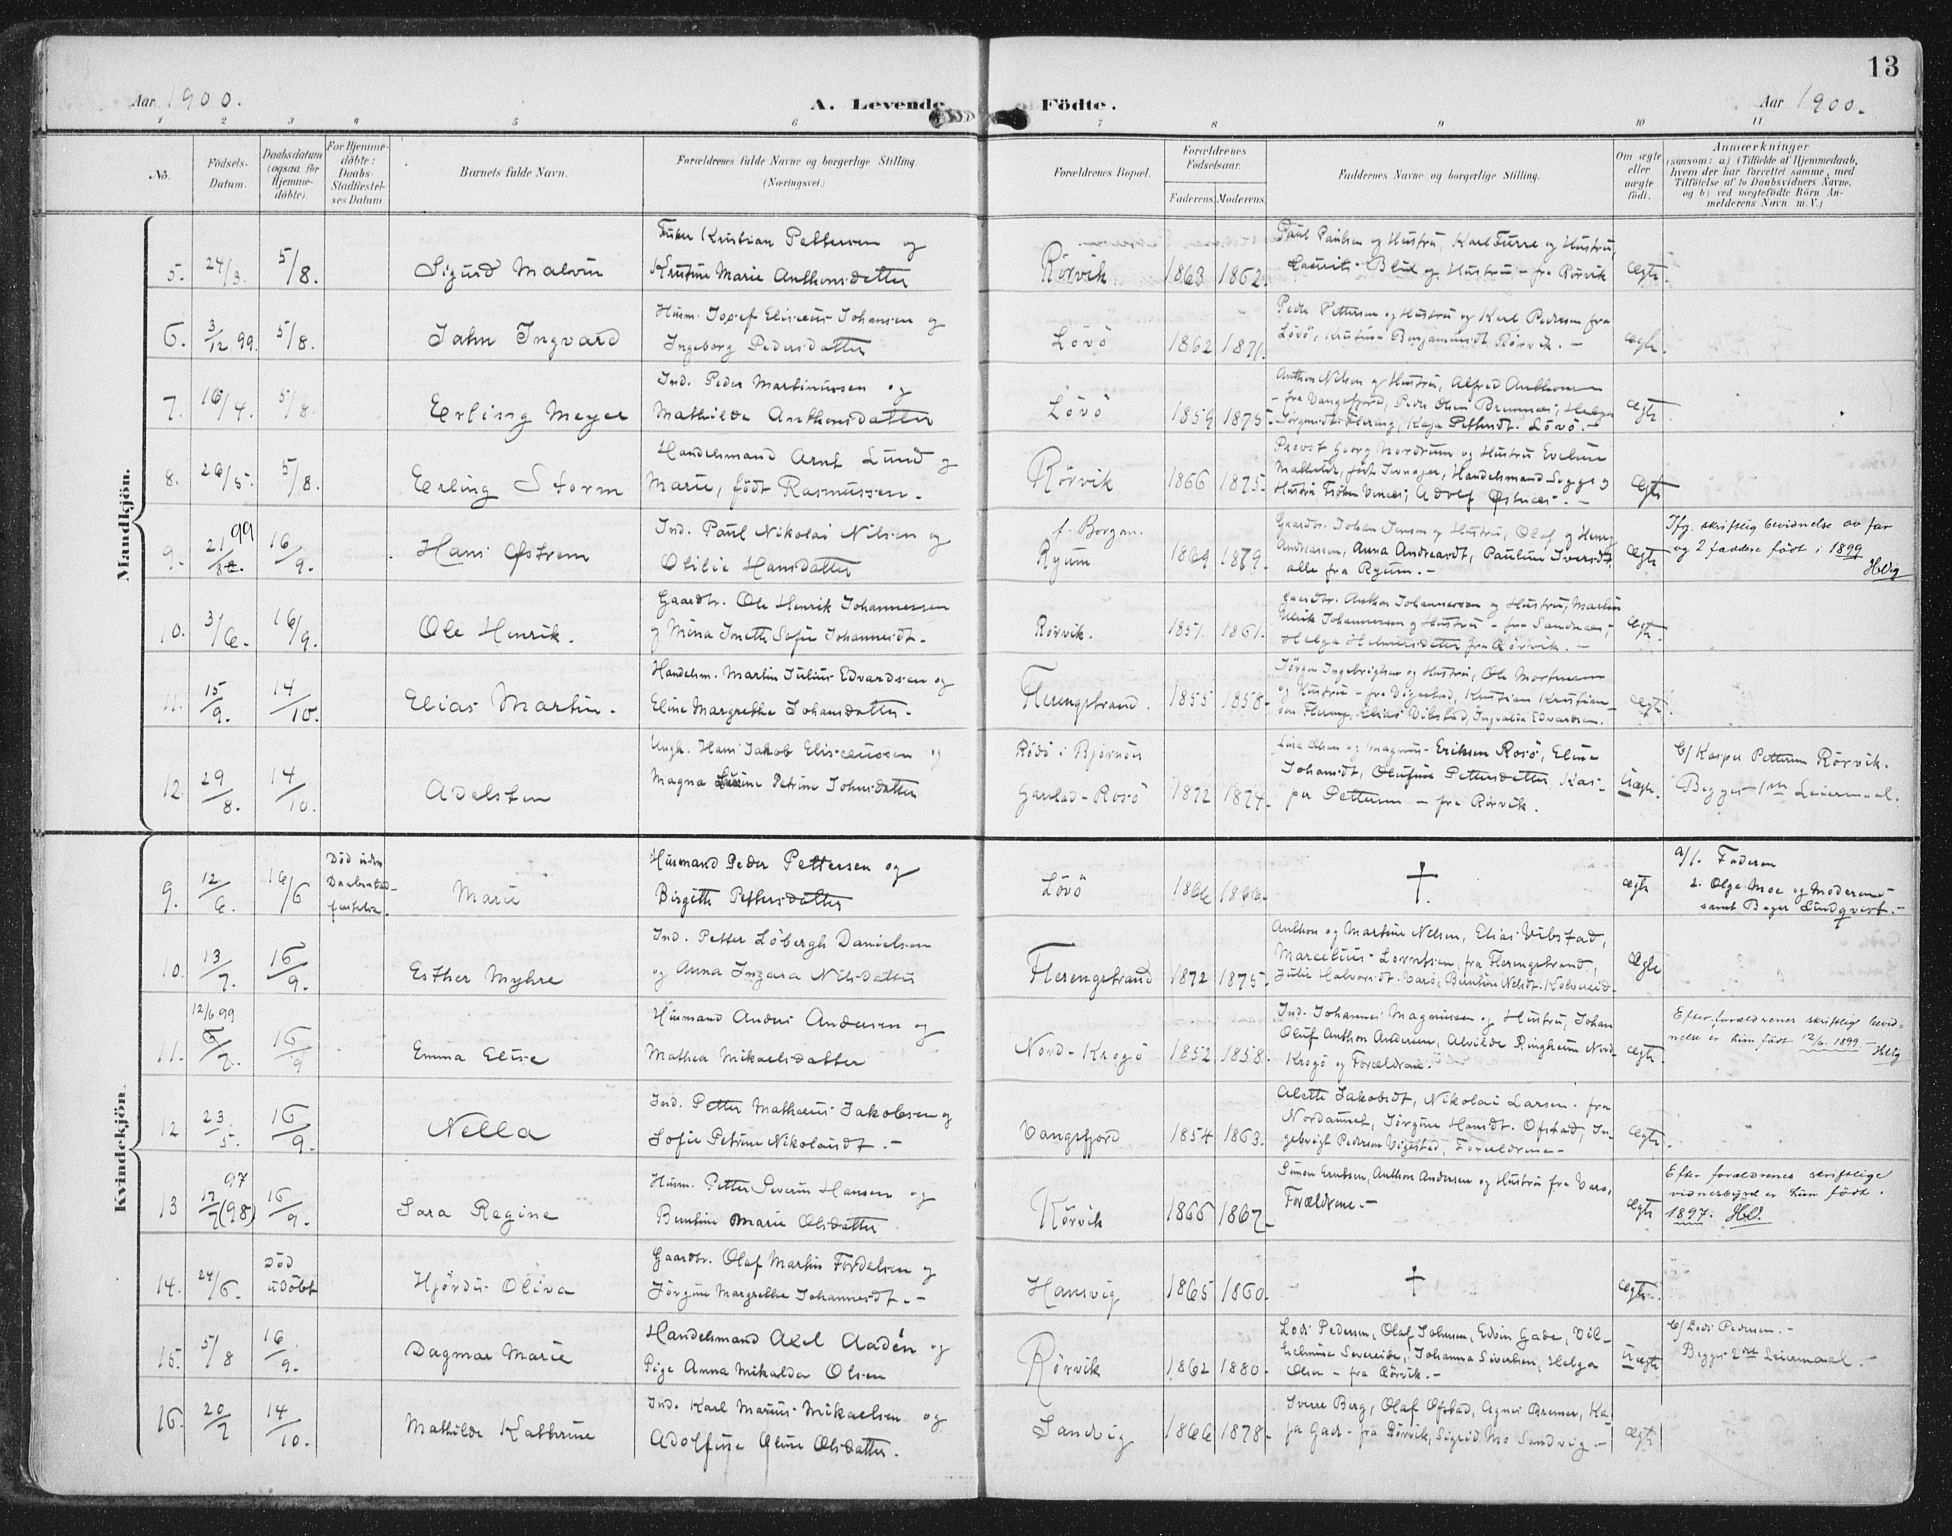 13
Aar 1900.
A. Levende Födte.
Aar 1900.
1 2 3 4 5 6 7 8 9 10 11
No.
Födsels-Datum.
Daabsdatum (ogsaa for Hjemmedöbte).
For Hjemmedöbte: Daabs-Stadfæstelses Datum.
Barnets fulde Navn.
Forældrenes fulde Navne og borgerlige Stilling.
(Næringsvei.)
Forældrenes Bopæl.
Forældrenes Födselsaar.
Faderens. Moderens.
Faddernes Navne og borgerlige Stilling.
Om ægte eller uægte født.
Anmærkninger
(saasom: a) i Tilfælde af Hjemmedaab, hvem der har forrettet samme, med Tilföielse af to Daabsvidners Navne, og b) ved uægtefödte Börn Anmelderens Navn m. V.)
Mandkjön.
5. 24/3. 5/8. Sigurd Malvin
Kristian Pettersen og
Kristine Marie Anthonsdatter
Rørvik 1863 1862.
Paul Paulsen og Hustru, Karl Furre og Hustru,
og Hustru – fra Rørvik
ægte.
6. 3/12 99. 5/8. Jahn Ingvard
Husm. Josef Elisæus Johansen og
Ingeborg Pedersdatter
Lövö 1862 1871.
Peder Pettersen og Hustru og Karl Pedersen fra
Lövö, Kristine Benjaminsdt. Rørvik. –
ægte.
7. 16/4. 5/8. Erling Meyer
Ind. Peder Martinussen og
Mathilde Anthonsdatter
Lövö 1859 1875.
Anthon Nilsen og Hustru, Alfred Anthonsen
– fra Vangsfjord, Peder Olsen Bremnes, Helga
Kaja Pettersdt. Lövö. –
ægte
8. 26/5. 5/8. Erling Storm
Handelsmand Arnt Lund og
Marie, født Rasmussen.
Rørvik 1866 1875.
Provst Georg Nordrum og Hustru Eveline
Mathilde, født Handelsmand
Hustru Frøken Adolf –
ægte
9. 21/8 99 16/9. Hans Østrem
Ind. Paul Nikolai Nilsen og
Otilie Hansdatter
f. Borgan.
Ryum 1869 1879.
Gaardbr. Johan Jensen og Hustru, Olaf og
Andreassen, Anna Andreasdt, Pauline Iversdt
alle fra Ryum. –
ægte
Ifg. skriftlig bevidnelse av far
og 2 faddere født i 1899
10. 3/6. 16/9. Ole Henrik.
Gaardbr. Ole Henrik Johannessen
og Mina Jonette Sofie Johannesdt.
Rørvik. 1851. 1861.
Gaardbr. Anthon Johannessen og Hustru, Martin
Ulrik Johannessen og Hustru – fra Sandnes,
Helga fra Rørvik. –
ægte.
11. 15/9. 14/10. Elias Martin.
Handelsm. Martin Julius Edvardsen og
Eline Margrethe Johansdatter.
Flerengstrand. 1855 1858.
Jörgen Ingebrigtsen og Hustru, Ole Mortensen
og Hustru – fra Vigestad, Kristian Kristian-
sen Flereng, Elias Vibstad, Ingvalda Edvardsen.
ægte.
12. 29/8. 14/10. Adelsten
Ungk. Hans Jakob Elisæussen og
Magna Petrine Johnsdatter
Rödö i Bjørnör
Garstad – Rosö 1872 1874.
Olsen og Magnus Eriksen Rosö, Eline
Johansdt, Olufine Pettersdatter, Kas-
per Pettersen – fra Rørvik.
Uægte.
b/ Kasper Pettersen Rørvik.
Begges 1ste Leiermaal.
Kvindekjön.
9. 12/6. 16/6 Död uden Daabsstad- Marie
Husmand Peder Pettersen og
Birgitte Pettersdatter
Lövö 1866 1866.
†
ægte
a/1. Faderen
2. Olga Moe og Moderen
samt Beyer Lindqvist. –
10. 13/7. 16/9. Esther Myhre
Ind. Petter Löbergh Danielsen
og Anna Ingara Nilsdatter
Flerengstrand 1872 1875.
Anthon og Martine Nilsen, Elias Vibstad,
Marcelius Lorntsen, fra Flerengstrand,
Julie Halvorsdt. Varö, Berntine Nilsdt. Kolvereid.
ægte
11. 12/6 99 6/7. 16/9 Emma Elise
Husmand Andreas Andersen og
Mathea Mikaelsdatter
Nord-Krogö 1852 1858.
Ind. Johannes Magnussen og Hustru, Johan
Oluf Anthon Andersen, Alvilde Ringheim Nord-
Krogö og Forældrene.
ægte.
Efter forældrenes skriftlige bevid-
nelse er hun født 12/6. 1899.
12 23/5. 16/9. Nella
Ind. Petter Mathæus Jakobsen og
Sofie Petrine Nikolaisdt. –
Vangsfjord 1854 1863.
Alette Jakobsdt, Nikolai Larsen – fra
Nordaunet, Jörgine Hansdt. Ofstad, In-
gebrigt Pedersen Vigestad, Forældrene –
ægte.
13 17/7 97 (98) 16/9. Sara Regine
Husm. Petter Severin Hansen og
Berntine Marie Olsdatter.
Rörvik 1866 1867
Simon Anthon Andersen og Hustru fra Varö,
Forældrene. –
ægte
Efter forældrenes skriftlige
vidnesbyrd er hun født.
1897.
14. 24/6. Död udöbt Hjördis Oliva
Gaardbr. Olaf Martin Fordelsen og
Jörgine Margrethe Johannesdt. –
Hansvig 1865 1860.
– †
ægte.
15. 5/8 16/9. Dagmar Marie
Handelsmand Axel Aadén og
Pige Anna Mikalda Olsen
Rörvik 1862 1880.
Lodi Pedersen, Olaf Johnsen, Edvin Gade, Vil-
helmine Severeide, Johanna Sivertsen, Helga
Olsen – fra Rörvik. –
Uægte
b/ Lodi Pedersen. –
Begges 2det Leiermaal. –
16. 20/7 14/10. Mathilde Kathrine
Ind. Karl Marius Mikaelsen og
Adolfine Oline Olsdatter.
Sandvig 1866 1878.
Sverre Berg, Olaf Ofstad, Agnes Bremer, Ka-
ja Gade – fra Rörvik, Sigrid Mo Sandvig –
ægte